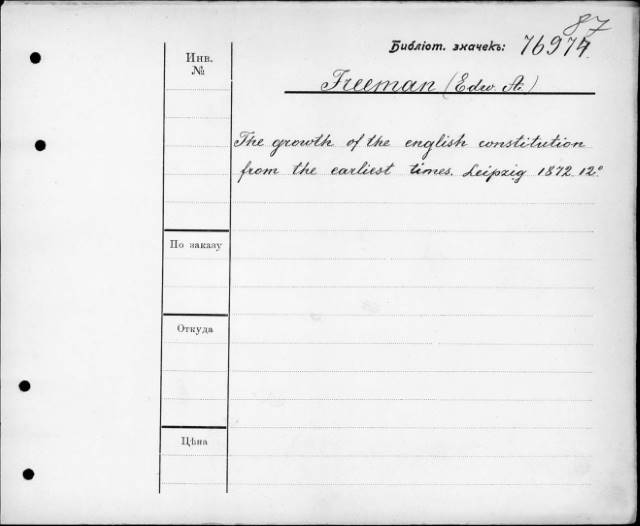 87
Библіот. значекъ: 76974.
Инв.
№
Freeman (Edw. A.)
The growth of the english constitution
from the earliest times. Leipzig 1872. 12°
По заказу
Откуда
Цѣна